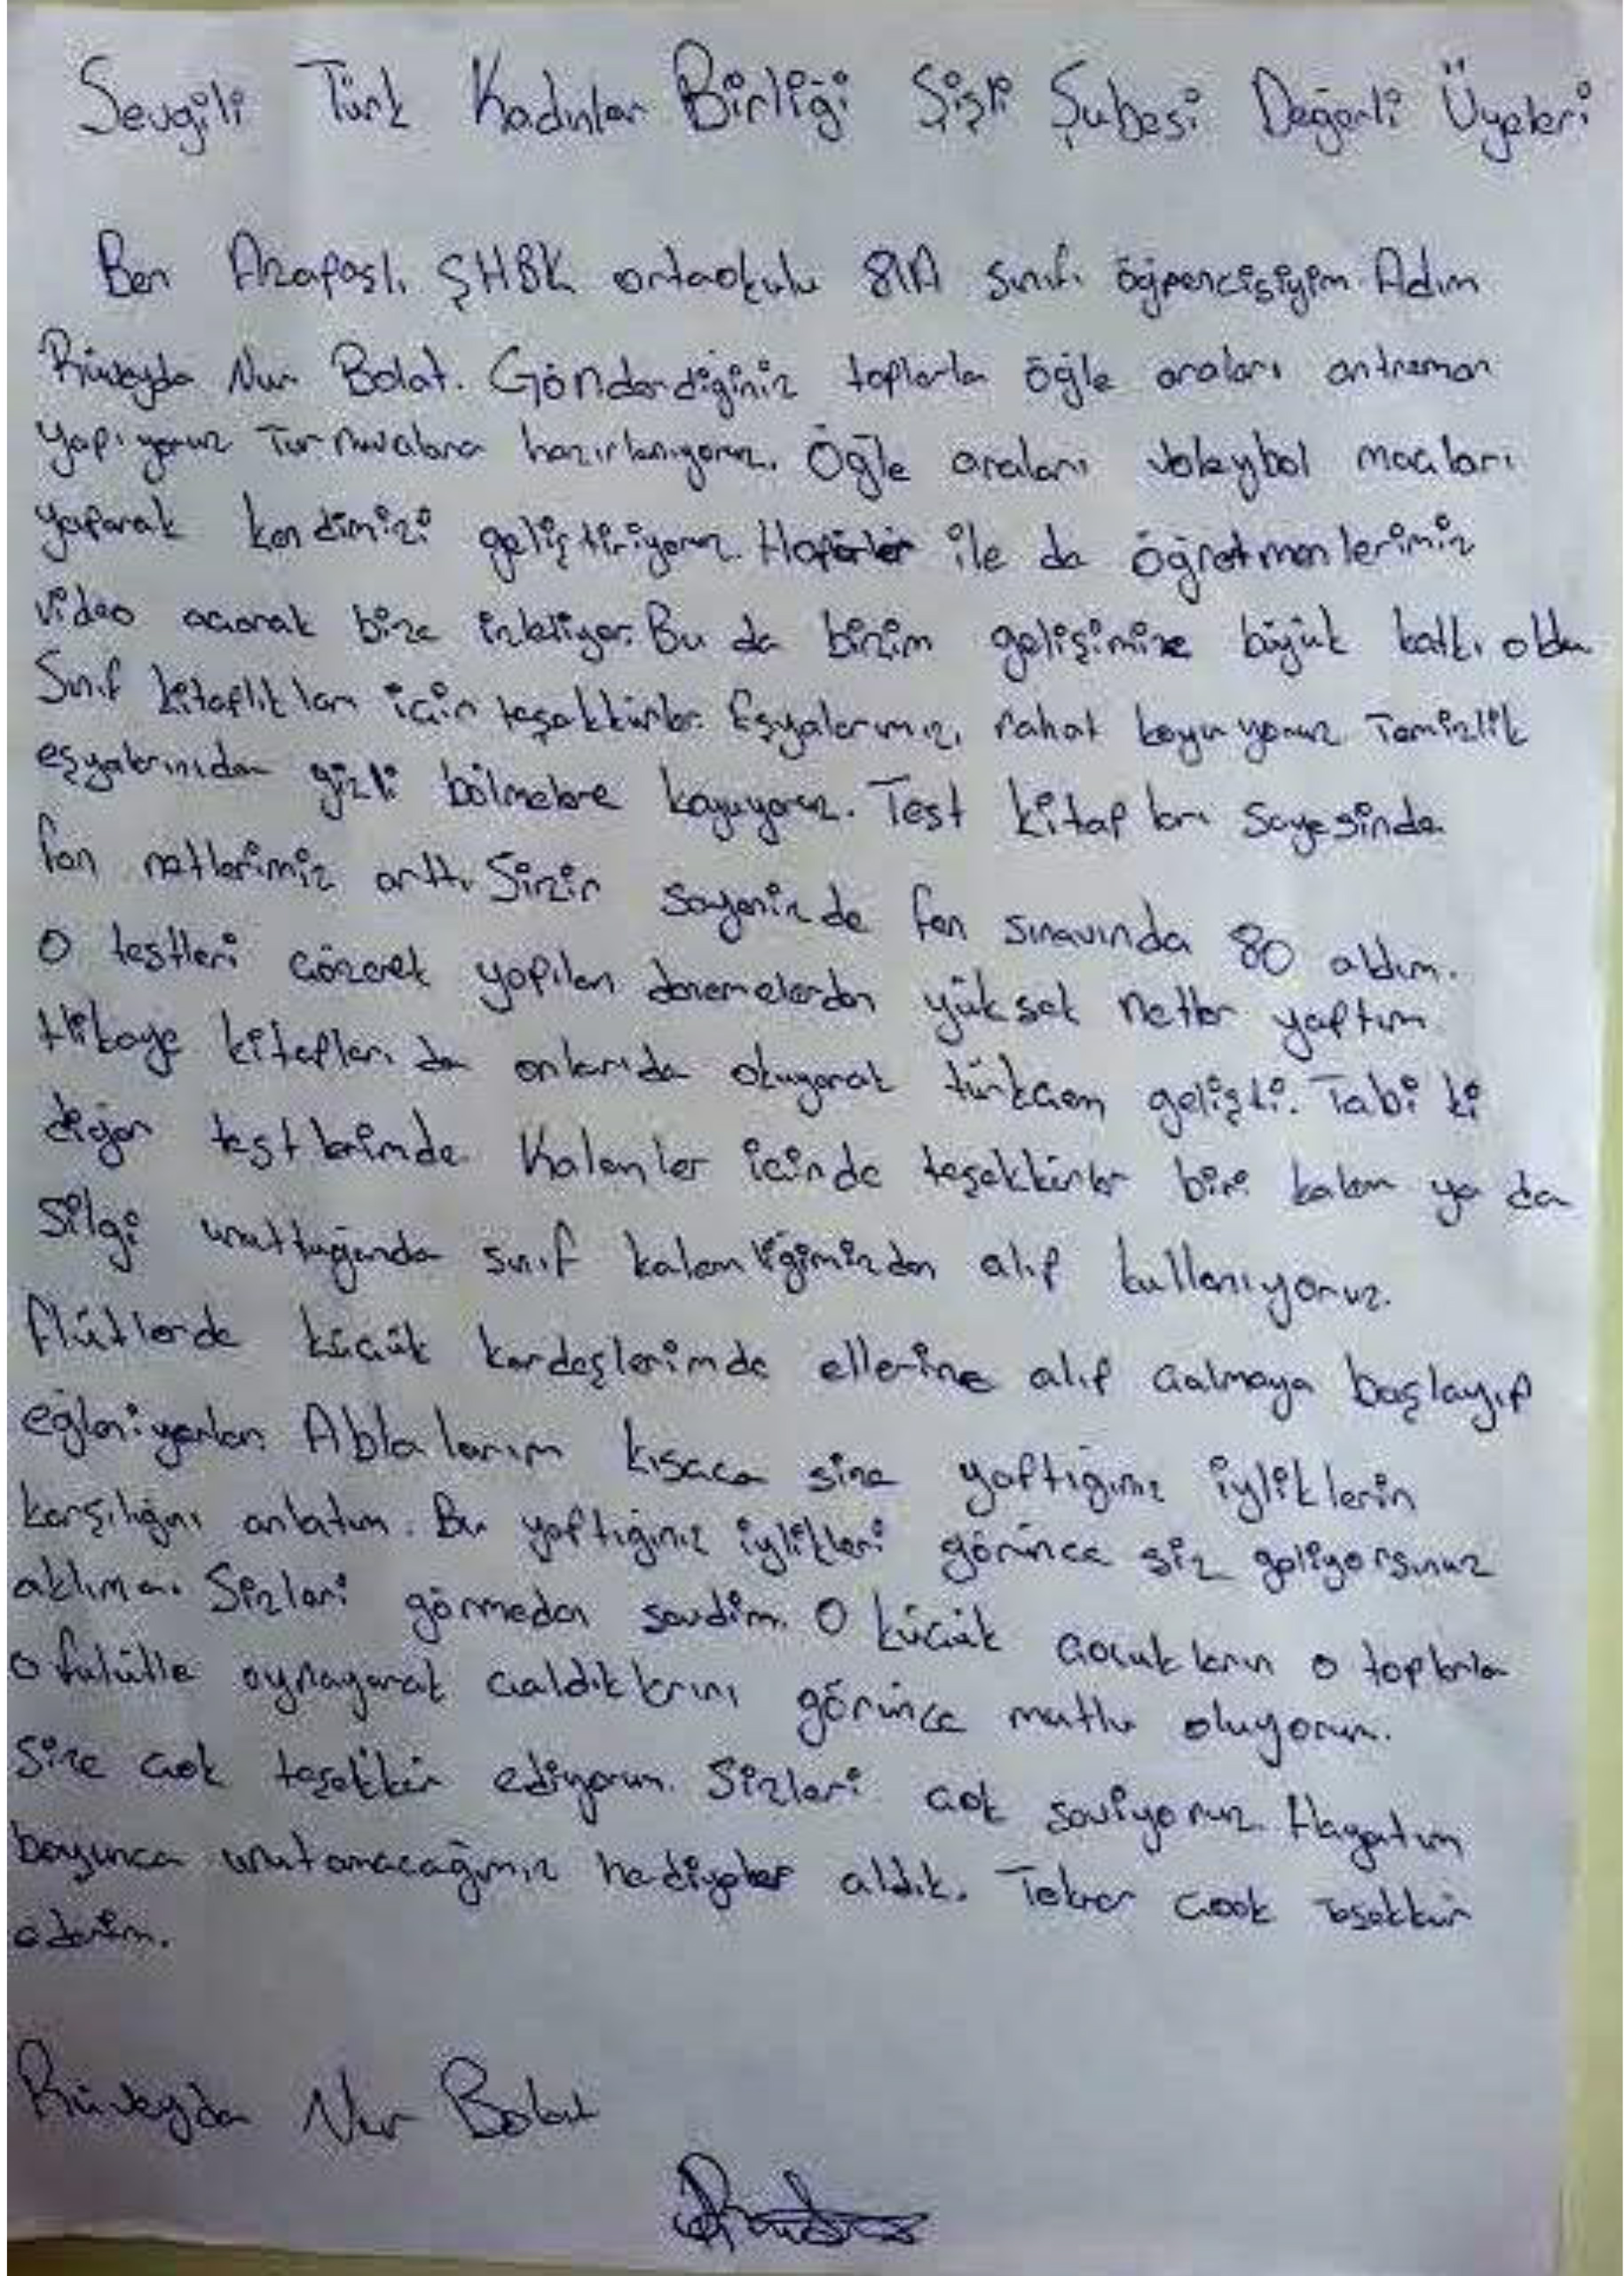 Sevgili Türk Kadınlar Birliği Şişli Şubesi Değerli Üyeleri
Ben Arapaşlı ŞHBK ortaokulu 8/A sınıfı öğrencisiyim. Adım
Rüveyda Nur Bolat. Gönderdiğiniz toplarla öğle araları antreman
yapıyoruz Turnuvalara hazırlanıyoruz. Öğle araları voleybol maçları
yaparak kendimizi geliştiriyoruz. Hoparlör ile da öğretmenlerimiz
video açarak bize izletiyor. Bu da bizim gelişimize büyük katkı oldu
Sınıf kitaplıkları için teşekkürler. Eşyalarımızı rahat koyuyoruz Temizlik
eşyalarınıda gizli bölmelere koyuyoruz. Test kitapları sayesinde
fen netlerimiz arttı. Sizin sayenizde fen sınavında 80 aldım.
O testleri çözerek yapılan denemelerden yüksek netler yaptım
Hikaye kitapları da onlarıda okuyarak türkçem gelişti. Tabi ki
diğer testlerimde. Kalemler içinde teşekkürler biri kalem ya da
silgi unuttuğunda sınıf kalemliğimizden alıp kullanıyoruz.
flütlerde küçük kardeşlerimde ellerine alıp çalmaya başlayıp
eğleniyorlar. Ablalarım kısaca size yaptığınız iyliklerin
karşılığını anlatım. Bu yaptığınız iylikleri görünce siz geliyorsunuz
aklıma. Sizleri görmeden sevdim. O küçük çocukların o toplarla
o fulütle oynayarak çaldıklarını görünce mutlu oluyorum.
Size çok teşekkür ediyorum. Sizleri çok seviyoruz. Hayatım
boyunca unutamacağımız hediyeler aldık. Tekrar çook teşekkür
ederim.
Rüveyda Nur Bolat